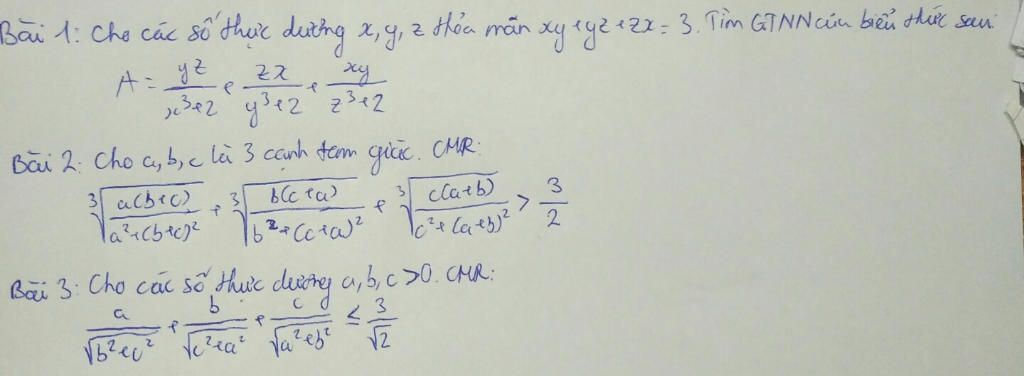 Bài 1: Cho các số thực dương x, y, z thỏa mãn xy+yz+zx=3. Tìm GTNN của biểu thức sau:
A = yz/(x³+2) + zx/(y³+2) + xy/(z³+2)
Bài 2: Cho a, b, c là 3 cạnh tam giác. CMR:
∛(a(b+c)/(a²+(b+c)²)) + ∛(b(c+a)/(b²+(c+a)²)) + ∛(c(a+b)/(c²+(a+b)²)) > 3/2
Bài 3: Cho các số thực dương a, b, c >0. CMR:
a/√(b²+c²) + b/√(c²+a²) + c/√(a²+b²) ≤ 3/√2